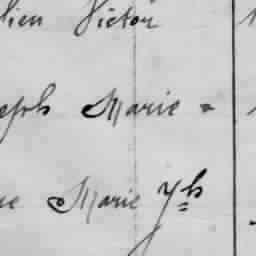 lien Victor
eph Marie =
ue Marie Jh